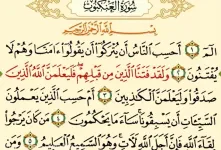 سورة العنكبوت
بسم الله الرحمن الرحيم
الٓمٓ ١ أَحَسِبَ النَّاسُ أَن يُتْرَكُوا أَن يَقُولُوا ءَامَنَّا وَهُمْ لَا
يُفْتَنُونَ ٢ وَلَقَدْ فَتَنَّا الَّذِينَ مِن قَبْلِهِمْ فَلَيَعْلَمَنَّ اللَّهُ الَّذِينَ
صَدَقُوا وَلَيَعْلَمَنَّ الْكَاذِبِينَ ٣ أَمْ حَسِبَ الَّذِينَ يَعْمَلُونَ
السَّيِّئَاتِ أَن يَسْبِقُونَا سَاءَ مَا يَحْكُمُونَ ٤ مَن كَانَ يَرْجُوا
لِقَاءَ اللَّهِ فَإِنَّ أَجَلَ اللَّهِ لَآتٍ وَهُوَ السَّمِيعُ الْعَلِيمُ ٥ وَمَن